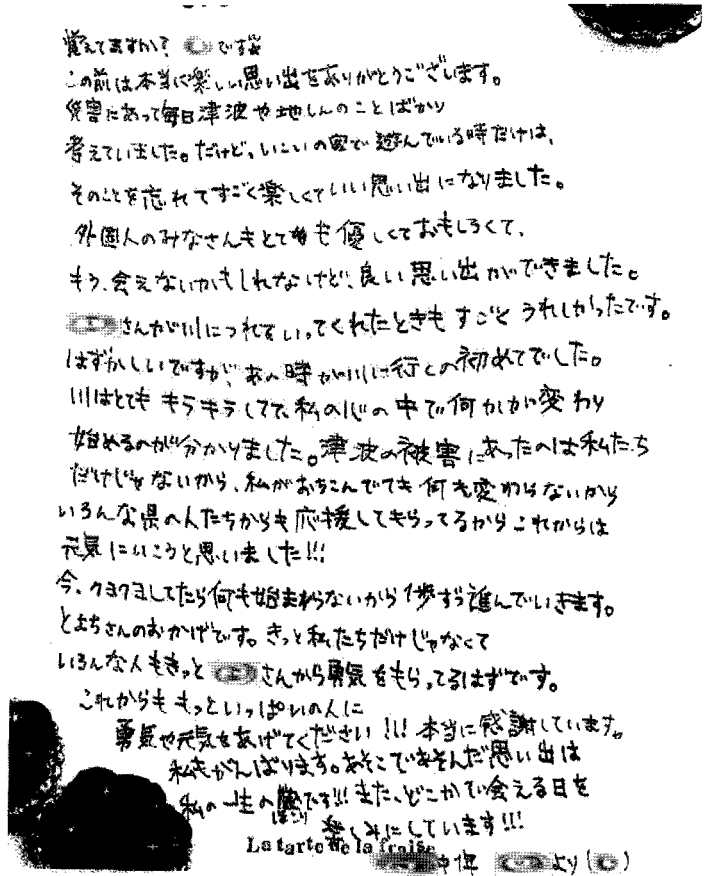 覚えてますか? です
この前は本当に楽しい思い出をありがとうございます。
災害にあって毎日津波や地しんのことばかり
考えていました。だけど、いこいの家で遊んでいる時だけは、
そのことを忘れてすごく楽しくていい思い出になりました。
外国人のみなさんもとても優しくておもしろくて、
もう、会えないかもしれないけど、良い思い出ができました。
さんが川につれていってくれたときもすごくうれしかったです。
はずかしいですが、あの時が川に行くの初めてでした。
川はとてもキラキラしてて、私の心の中で何かが変わり
始めるのが分かりました。津波の被害にあったのは私たち
だけじゃないから、私がおちこんでても何も変わらないから
いろんな県の人たちからも応援してもらってるからこれからは
元気にいこうと思いました!!!
今、クヨクヨしてたら何も始まわらないから1歩ずつ進んでいきます。
とよちさんのおかげです。きっと私たちだけじゃなくて
いろんな人もきっと さんから勇気をもらってるはずです。
これからももっといっぱいの人に
勇気や元気をあげてください!!! 本当に感謝しています。
私もがんばります。あそこであそんだ思い出は
私の一生の です!!! また、どこかで会える日を
ほこり
楽しみにしています!!!
La tarte de la fraise
中1年 より( )